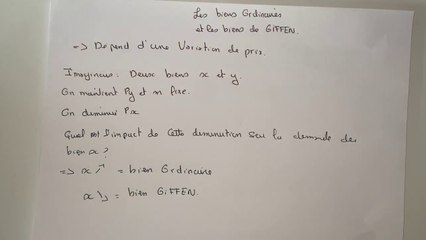 Les biens Ordinaires
et les biens de GIFFEN.
=> Depend d'une Variation de prix.
Imaginons : Deux biens x et y.
On maintient Py et m fixe.
On diminue Px
Quel est l'impact de Cette diminution sur la demande des
bien x ?
=> x ↗ = bien Ordinaire
x ↘ = bien GIFFEN.